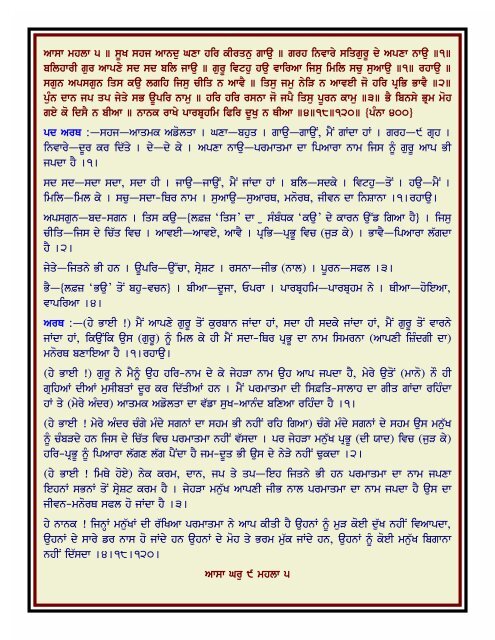 ਆਸਾ ਮਹਲਾ ੫ ॥ ਸੂਖ ਸਹਜ ਆਨਦੁ ਘਣਾ ਹਰਿ ਕੀਰਤਨੁ ਗਾਉ ॥ ਗਰਹ ਨਿਵਾਰੇ ਸਤਿਗੁਰੂ ਦੇ ਅਪਣਾ ਨਾਉ ॥੧॥
ਬਲਿਹਾਰੀ ਗੁਰ ਆਪਣੇ ਸਦ ਸਦ ਬਲਿ ਜਾਉ ॥ ਗੁਰੂ ਵਿਟਹੁ ਹਉ ਵਾਰਿਆ ਜਿਸੁ ਮਿਲਿ ਸਚੁ ਸੁਆਉ ॥੧॥ ਰਹਾਉ ॥
ਸਗੁਨ ਅਪਸਗੁਨ ਤਿਸ ਕਉ ਲਗਹਿ ਜਿਸੁ ਚੀਤਿ ਨ ਆਵੈ ॥ ਤਿਸੁ ਜਮੁ ਨੇੜਿ ਨ ਆਵਈ ਜੋ ਹਰਿ ਪ੍ਰਭਿ ਭਾਵੈ ॥੨॥
ਪੁੰਨ ਦਾਨ ਜਪ ਤਪ ਜੇਤੇ ਸਭ ਊਪਰਿ ਨਾਮੁ ॥ ਹਰਿ ਹਰਿ ਰਸਨਾ ਜੋ ਜਪੈ ਤਿਸੁ ਪੂਰਨ ਕਾਮੁ ॥੩॥ ਭੈ ਬਿਨਸੇ ਭ੍ਰਮ ਮੋਹ
ਗਏ ਕੋ ਦਿਸੈ ਨ ਬੀਆ ॥ ਨਾਨਕ ਰਾਖੇ ਪਾਰਬ੍ਰਹਮਿ ਫਿਰਿ ਦੂਖੁ ਨ ਥੀਆ ॥੪॥੧੮॥੧੨੦॥ {ਪੰਨਾ ੪੦੦}
ਪਦ ਅਰਥ :—ਸਹਜ—ਆਤਮਕ ਅਡੋਲਤਾ । ਘਣਾ—ਬਹੁਤ । ਗਾਉ—ਗਾਉਂ, ਮੈਂ ਗਾਂਦਾ ਹਾਂ । ਗਰਹ—੯ ਗ੍ਰਹ ।
ਨਿਵਾਰੇ—ਦੂਰ ਕਰ ਦਿੱਤੇ । ਦੇ—ਦੇ ਕੇ । ਅਪਣਾ ਨਾਉ—ਪਰਮਾਤਮਾ ਦਾ ਪਿਆਰਾ ਨਾਮ ਜਿਸ ਨੂੰ ਗੁਰੂ ਆਪ ਭੀ
ਜਪਦਾ ਹੈ ।੧।
ਸਦ ਸਦ—ਸਦਾ ਸਦਾ, ਸਦਾ ਹੀ । ਜਾਉ—ਜਾਉਂ, ਮੈਂ ਜਾਂਦਾ ਹਾਂ । ਬਲਿ—ਸਦਕੇ । ਵਿਟਹੁ—ਤੋਂ । ਹਉ—ਮੈਂ ।
ਮਿਲਿ—ਮਿਲ ਕੇ । ਸਚੁ—ਸਦਾ-ਥਿਰ ਨਾਮ । ਸੁਆਉ—ਸੁਆਰਥ, ਮਨੋਰਥ, ਜੀਵਨ ਦਾ ਨਿਸ਼ਾਨਾ ।੧।ਰਹਾਉ।
ਅਪਸਗੁਨ—ਬਦ-ਸਗਨ । ਤਿਸ ਕਉ—{ਲਫ਼ਜ਼ ‘ਤਿਸ’ ਦਾ ੁ ਸੰਬੰਧਕ ‘ਕਉ’ ਦੇ ਕਾਰਨ ਉੱਡ ਗਿਆ ਹੈ} । ਜਿਸੁ
ਚੀਤਿ—ਜਿਸ ਦੇ ਚਿੱਤ ਵਿਚ । ਆਵਈ—ਆਵਏ, ਆਵੈ । ਪ੍ਰਭਿ—ਪ੍ਰਭੂ ਵਿਚ (ਜੁੜ ਕੇ) । ਭਾਵੈ—ਪਿਆਰਾ ਲੱਗਦਾ
ਹੈ ।੨।
ਜੇਤੇ—ਜਿਤਨੇ ਭੀ ਹਨ । ਊਪਰਿ—ਉੱਚਾ, ਸ੍ਰੇਸ਼ਟ । ਰਸਨਾ—ਜੀਭ (ਨਾਲ) । ਪੂਰਨ—ਸਫਲ ।੩।
ਭੈ—{ਲਫ਼ਜ਼ ‘ਭਉ’ ਤੋਂ ਬਹੁ-ਵਚਨ} । ਬੀਆ—ਦੂਜਾ, ਓਪਰਾ । ਪਾਰਬ੍ਰਹਮਿ—ਪਾਰਬ੍ਰਹਮ ਨੇ । ਥੀਆ—ਹੋਇਆ,
ਵਾਪਰਿਆ ।੪।
ਅਰਥ :—(ਹੇ ਭਾਈ !) ਮੈਂ ਆਪਣੇ ਗੁਰੂ ਤੋਂ ਕੁਰਬਾਨ ਜਾਂਦਾ ਹਾਂ, ਸਦਾ ਹੀ ਸਦਕੇ ਜਾਂਦਾ ਹਾਂ, ਮੈਂ ਗੁਰੂ ਤੋਂ ਵਾਰਨੇ
ਜਾਂਦਾ ਹਾਂ, ਕਿਉਂਕਿ ਉਸ (ਗੁਰੂ) ਨੂੰ ਮਿਲ ਕੇ ਹੀ ਮੈਂ ਸਦਾ-ਥਿਰ ਪ੍ਰਭੂ ਦਾ ਨਾਮ ਸਿਮਰਨਾ (ਆਪਣੀ ਜ਼ਿੰਦਗੀ ਦਾ)
ਮਨੋਰਥ ਬਣਾਇਆ ਹੈ ।੧।ਰਹਾਉ।
(ਹੇ ਭਾਈ !) ਗੁਰੂ ਨੇ ਮੈਨੂੰ ਉਹ ਹਰਿ-ਨਾਮ ਦੇ ਕੇ ਜੇਹੜਾ ਨਾਮ ਉਹ ਆਪ ਜਪਦਾ ਹੈ, ਮੇਰੇ ਉਤੋਂ (ਮਾਨੋ) ਨੌ ਹੀ
ਗ੍ਰਹਿਆਂ ਦੀਆਂ ਮੁਸੀਬਤਾਂ ਦੂਰ ਕਰ ਦਿੱਤੀਆਂ ਹਨ । ਮੈਂ ਪਰਮਾਤਮਾ ਦੀ ਸਿਫ਼ਤਿ-ਸਾਲਾਹ ਦਾ ਗੀਤ ਗਾਂਦਾ ਰਹਿੰਦਾ
ਹਾਂ ਤੇ (ਮੇਰੇ ਅੰਦਰ) ਆਤਮਕ ਅਡੋਲਤਾ ਦਾ ਵੱਡਾ ਸੁਖ-ਆਨੰਦ ਬਣਿਆ ਰਹਿੰਦਾ ਹੈ ।੧।
(ਹੇ ਭਾਈ ! ਮੇਰੇ ਅੰਦਰ ਚੰਗੇ ਮੰਦੇ ਸਗਨਾਂ ਦਾ ਸਹਮ ਭੀ ਨਹੀਂ ਰਹਿ ਗਿਆ) ਚੰਗੇ ਮੰਦੇ ਸਗਨਾਂ ਦੇ ਸਹਮ ਉਸ ਮਨੁੱਖ
ਨੂੰ ਚੰਬੜਦੇ ਹਨ ਜਿਸ ਦੇ ਚਿੱਤ ਵਿਚ ਪਰਮਾਤਮਾ ਨਹੀਂ ਵੱਸਦਾ । ਪਰ ਜੇਹੜਾ ਮਨੁੱਖ ਪ੍ਰਭੂ (ਦੀ ਯਾਦ) ਵਿਚ (ਜੁੜ ਕੇ)
ਹਰਿ-ਪ੍ਰਭੂ ਨੂੰ ਪਿਆਰਾ ਲੱਗਣ ਲੱਗ ਪੈਂਦਾ ਹੈ ਜਮ-ਦੂਤ ਭੀ ਉਸ ਦੇ ਨੇੜੇ ਨਹੀਂ ਢੁਕਦਾ ।੨।
(ਹੇ ਭਾਈ ! ਮਿਥੇ ਹੋਏ) ਨੇਕ ਕਰਮ, ਦਾਨ, ਜਪ ਤੇ ਤਪ—ਇਹ ਜਿਤਨੇ ਭੀ ਹਨ ਪਰਮਾਤਮਾ ਦਾ ਨਾਮ ਜਪਣਾ
ਇਹਨਾਂ ਸਭਨਾਂ ਤੋਂ ਸ੍ਰੇਸ਼ਟ ਕਰਮ ਹੈ । ਜੇਹੜਾ ਮਨੁੱਖ ਆਪਣੀ ਜੀਭ ਨਾਲ ਪਰਮਾਤਮਾ ਦਾ ਨਾਮ ਜਪਦਾ ਹੈ ਉਸ ਦਾ
ਜੀਵਨ-ਮਨੋਰਥ ਸਫਲ ਹੋ ਜਾਂਦਾ ਹੈ ।੩।
ਹੇ ਨਾਨਕ ! ਜਿਨ੍ਹਾਂ ਮਨੁੱਖਾਂ ਦੀ ਰੱਖਿਆ ਪਰਮਾਤਮਾ ਨੇ ਆਪ ਕੀਤੀ ਹੈ ਉਹਨਾਂ ਨੂੰ ਮੁੜ ਕੋਈ ਦੁੱਖ ਨਹੀਂ ਵਿਆਪਦਾ,
ਉਹਨਾਂ ਦੇ ਸਾਰੇ ਡਰ ਨਾਸ ਹੋ ਜਾਂਦੇ ਹਨ ਉਹਨਾਂ ਦੇ ਮੋਹ ਤੇ ਭਰਮ ਮੁੱਕ ਜਾਂਦੇ ਹਨ, ਉਹਨਾਂ ਨੂੰ ਕੋਈ ਮਨੁੱਖ ਬਿਗਾਨਾ
ਨਹੀਂ ਦਿੱਸਦਾ ।੪।੧੮।੧੨੦।
ਆਸਾ ਘਰੁ ੯ ਮਹਲਾ ੫